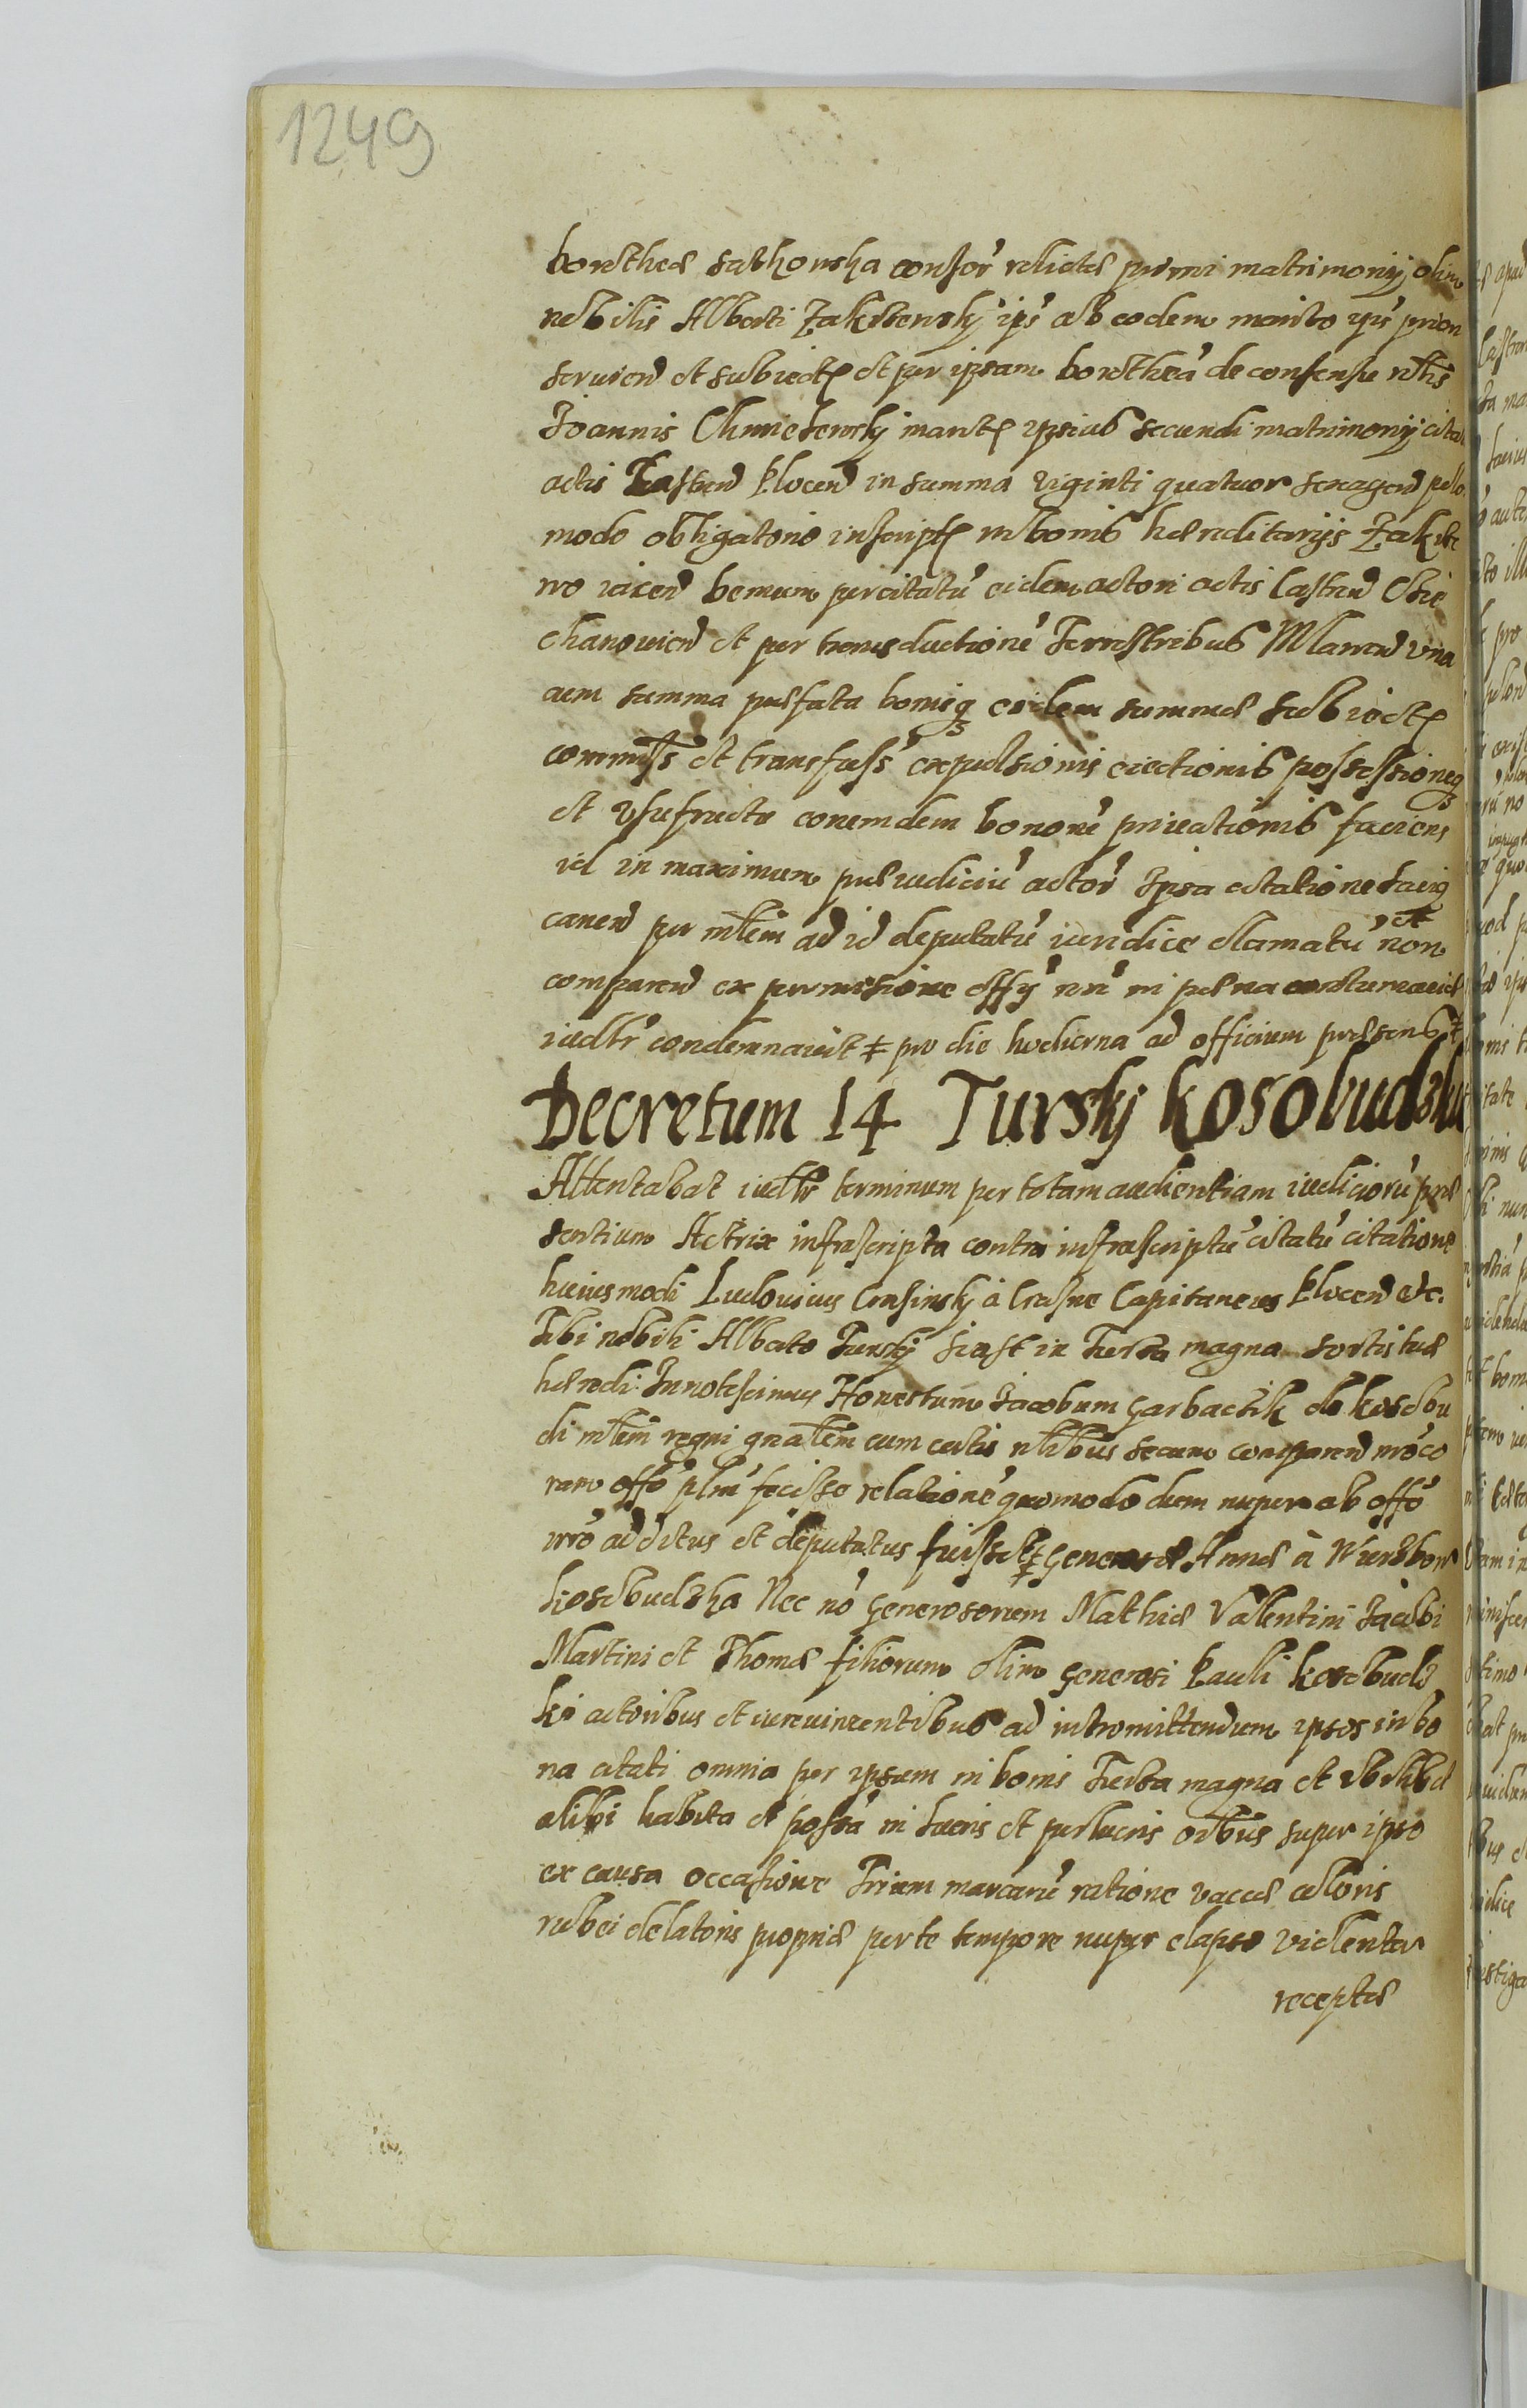 1249
borotheæ sathowska consor relictæ primi matrimonij olim
nobilis Alberti Zakrzewskj ips ab eodem marito ips prion
seruien et subiect et per ipsam borotheā de consensu nblis
Joannis Chmielewskj marit ipsius secundi matrimonij
actis Castren Plocen in summa viginti quatuor sexagen
modo obligatorio inscript in bonis hæreditarijs Zakrze
wo iacen bemum percitatū eidem actori actis Castren Cie
chanouien et per transductionē Terrestribus Mlauen vna
cum summa præfata bonisq eidem summæ subiect
commiss et transfuss expulsionis eiectionis possessioneq
et vsufructu eoremdem bonorū priuationis faciens
id in maximum præiudiciū actor Ipsa citatione
canen per mltem ad id deputatū iuridice clamatū et non
comparen ex permissione offij nri in pæna contumaciæ
iudlr condemnauit ‡ pro die hodierna ad officium præsens ‡
Decretum 14 Turskj Kosobudzka
Attentabat iudlr terminum per totam audientiam iudiciorū præ
sentium Actrix infrascripta contra infrascriptū citatū citatione
huiusmodi Ludouicus Crasinskj à Crasne Capitaneus Plocen etc.
Tibi nobili Alberto Turskj in Turza magna sortis tuæ
hæredi Innotescimus Honestum Jacobum Garbaczik de Kosobu
di mltem regni gnalem cum certis nblibus secum comparen
ram offo plm fecisse relationē quomodo dum nuper ab offo
nro additus et deputatus fuisset ‡ Generosæ Annæ à Wierzbow
Kosobudzka Nec nō Generosorum Mathiæ Valentini Jacobi
Martini et Thomæ filiorum olim Generosi Pauli Kosobudz
ki actoribus et iureuincentibus ad intromittendum ipsos in bo
na citati omnia per ipsum in bonis Turza magna et vbilibet
alibi habita et possa in lucris et perlucris oibus super ipso
ex causa occasione Trium marcarū ratione vaccæ coloris
rubei delatoris propriæ per te tempore nuper elapso violenter
receptæ